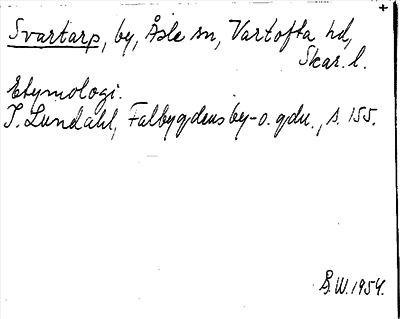 +
Svartarp, by, Åsle sn, Vartofta hd,
Skar. l.
Etymologi.
I. Lundahl, Falbygdens by- o. gdn., s. 155.
B.W. 1954.